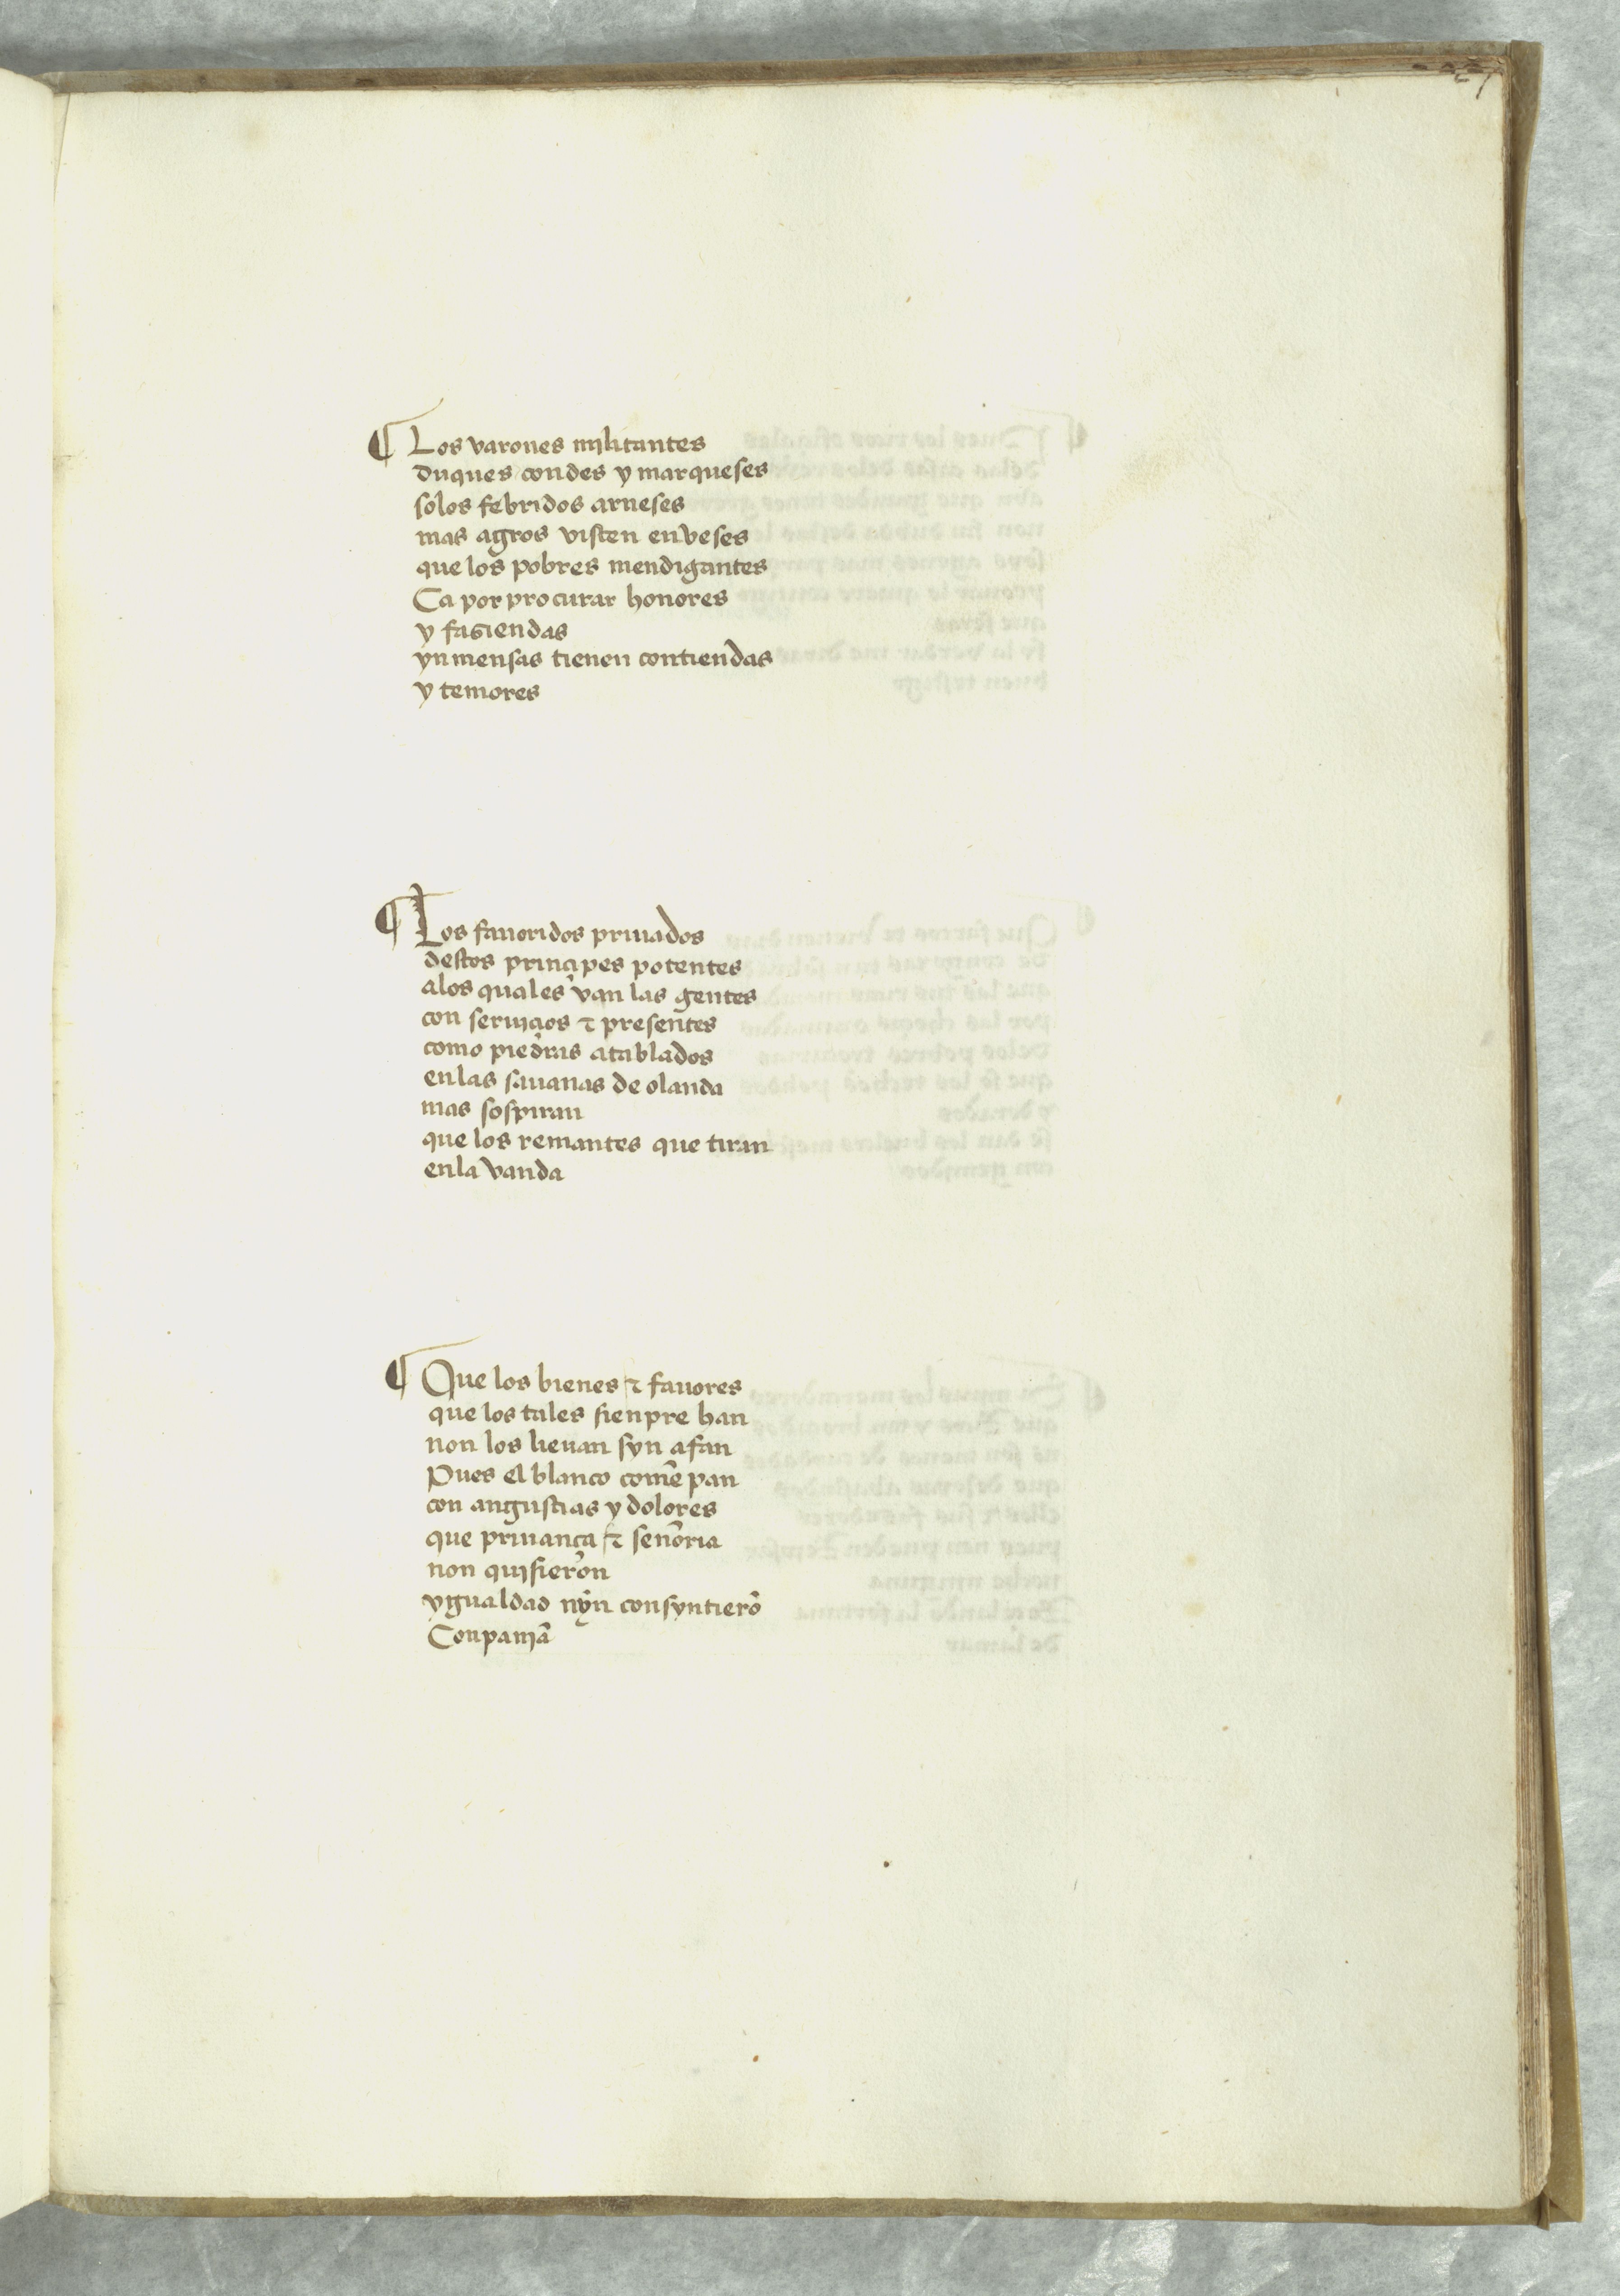 ¶ Los varones mjlitantes
duques condes y marqueses
solos febridos arneses
mas agros visten enveses
que los pobres mendigantes
Ca por procurar honores
y fasiendas
ynmensas tienen contiendas
y temores
¶ Los fauoridos priuados
destos principes potentes
alos quales van las gentes
con serujcios ⁊ presentes
como piedras atablados
enlas sauanas de olanda
mas sospiran
que los remantes que tiran
enla vanda
¶ Que los bienes ⁊ fauores
que los tales sienpre han
non los lieuan syn afan
Pues el blanco comē pan
con angustias y dolores
que priuança ⁊ señoria
non qujsieron
ygualdad njn consyntierō
Conpanjā